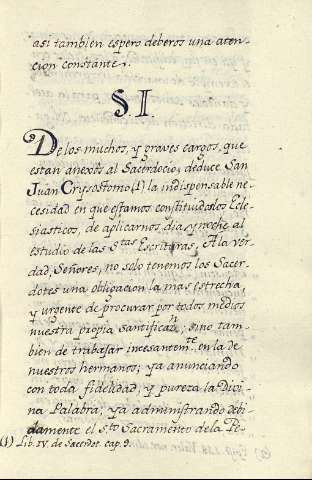 asi tambien espero deberos una aten-
cion constante.
§ I.
De los muchos, y graves cargos, que
estan anexos al Sacerdocio, deduce San
Juan Crysostomo (1) la indispensable ne-
cesidad en que estamos constituidos los Ecle-
siasticos, de aplicarnos dia y noche al
estudio de las S.tas Escrituras. A la ver-
dad, Señores, no solo tenemos los Sacer-
dotes una obligacion la mas estrecha,
y urgente de procurar por todos medios
nuestra propia santificaz.n; sino tam-
bien de trabajar incesantem.te en la de
nuestros hermanos; ya anunciando
con toda fidelidad, y pureza la Divi-
na Palabra; ya administrando debi-
damente el s.to Sacramento de la Pe-
(1) Lib. IV. de Sacerdot. cap. 9.